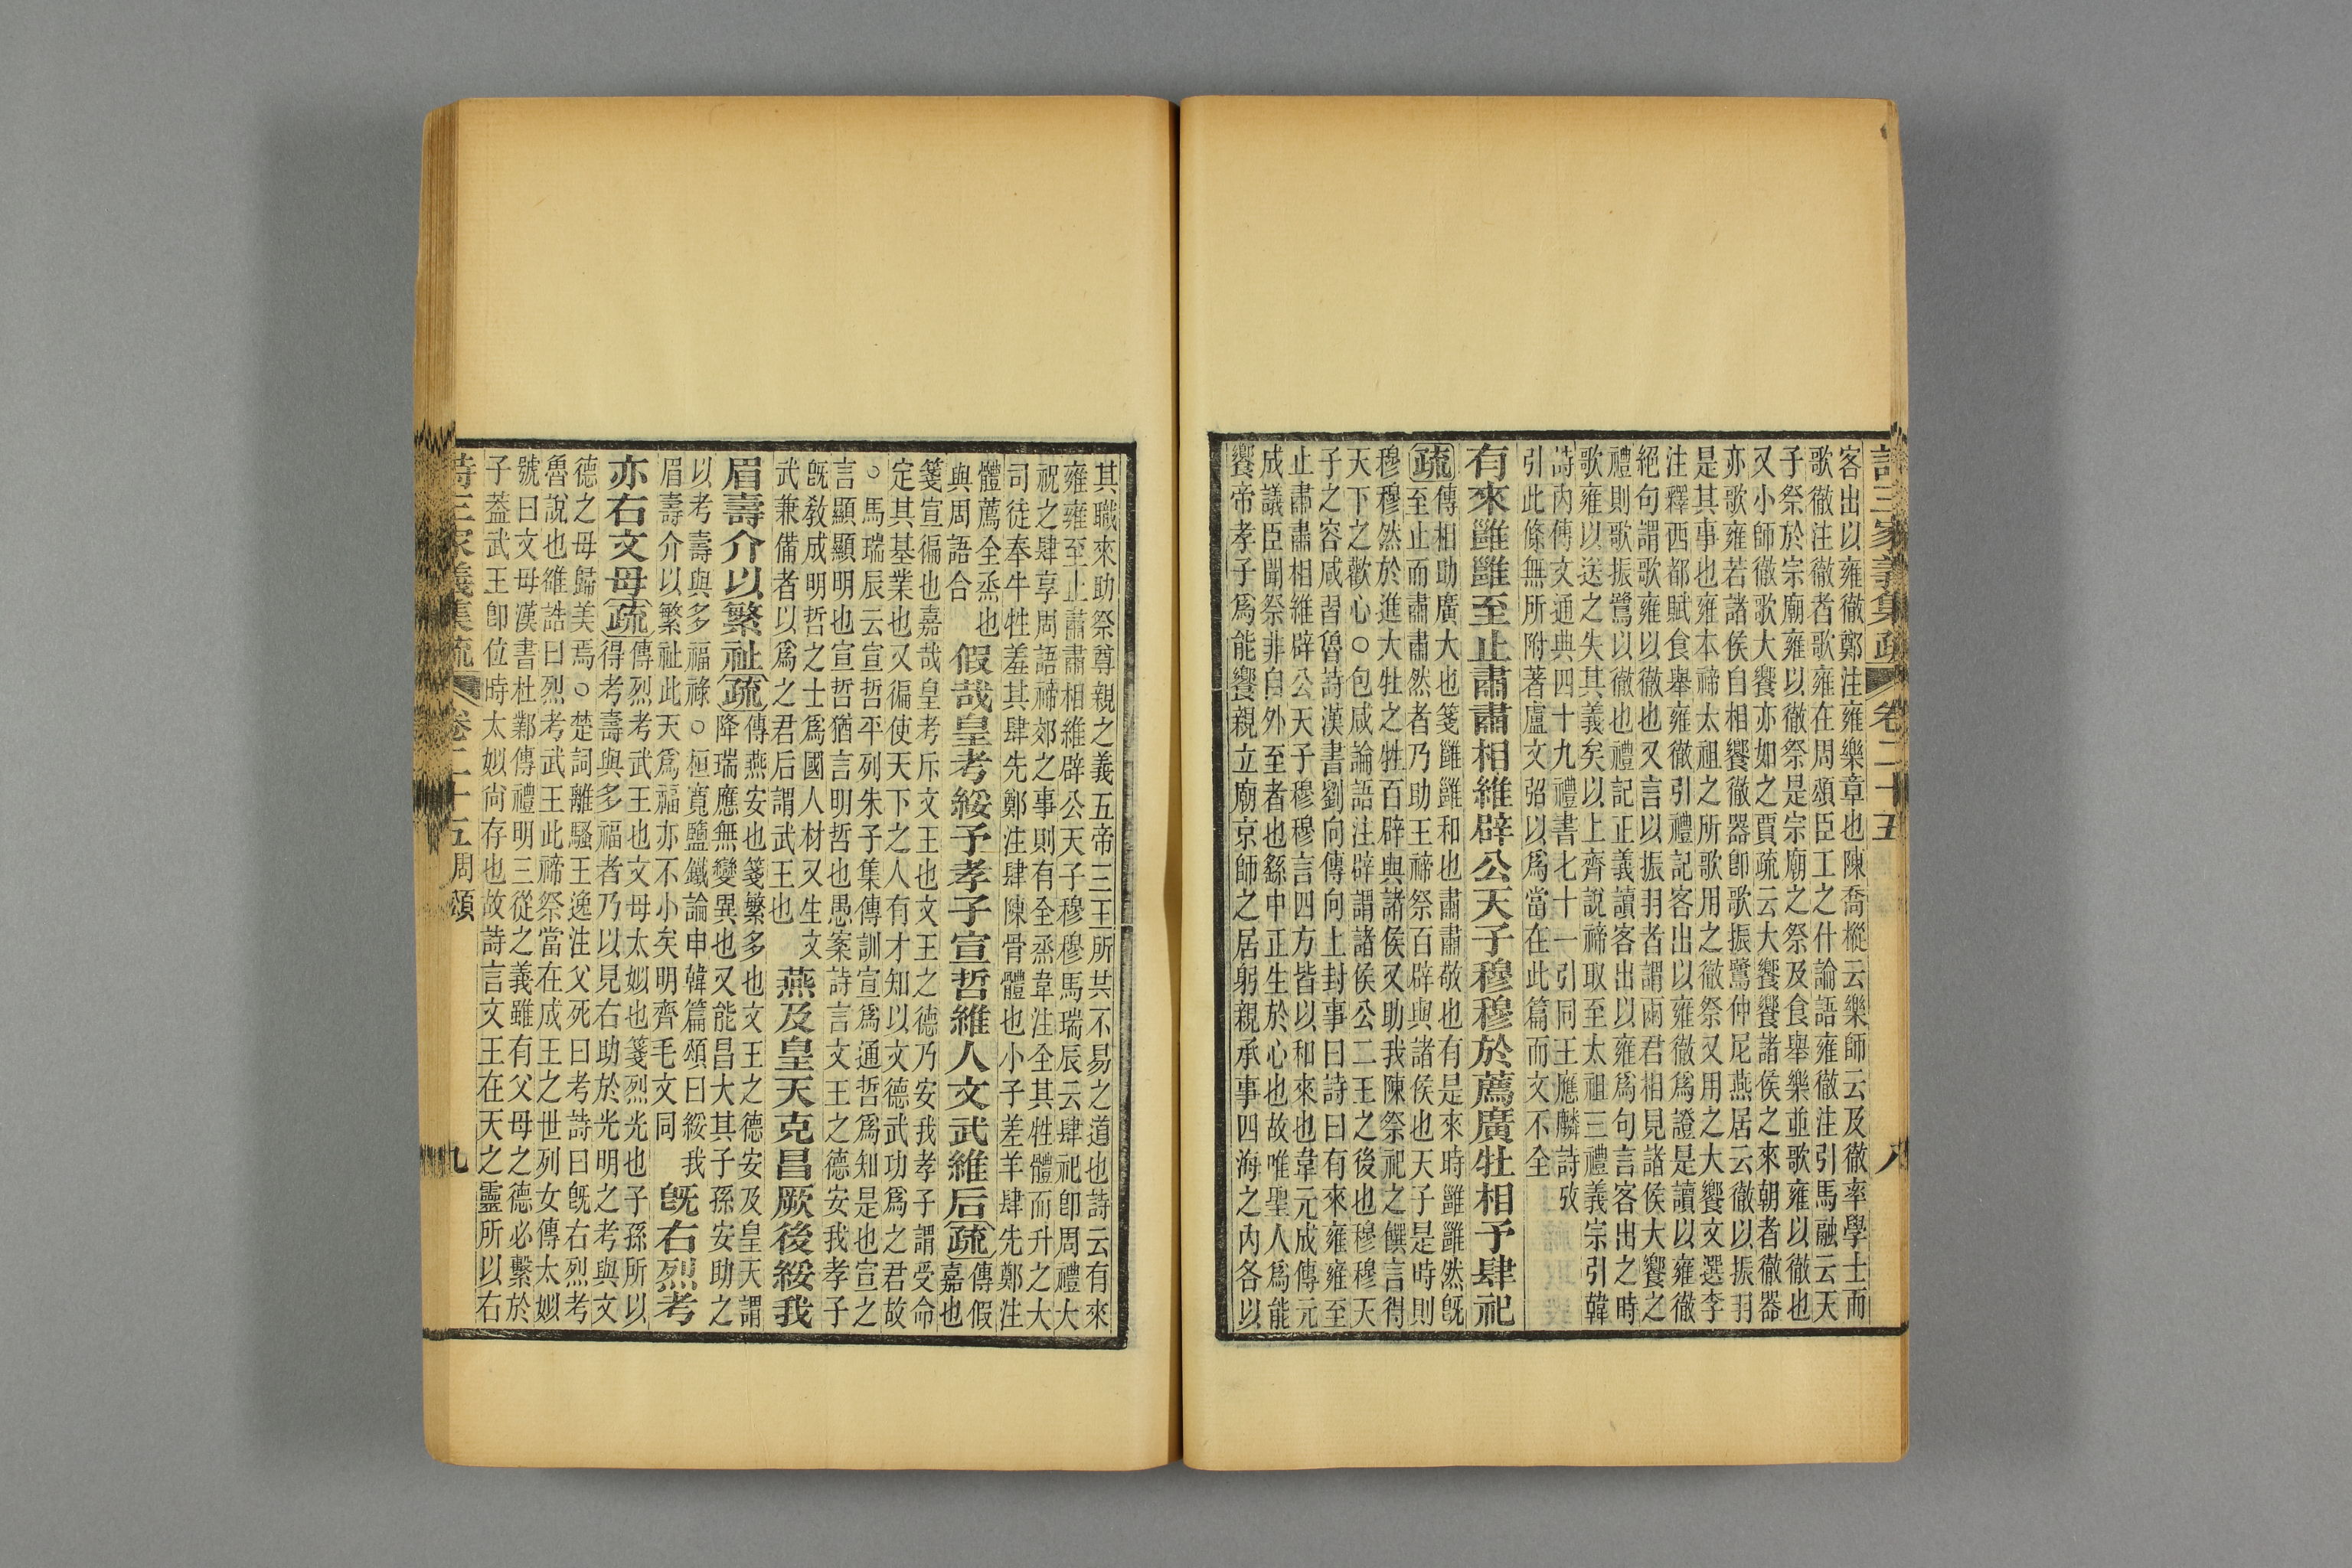 詩三家義集疏 卷二十五 八
客出以雍徹鄭注雍樂章也陳喬樅云樂師云及徹率學士而
歌徹注徹者歌雍在周頌臣工之什論語雍徹注引馬融云天
子祭於宗廟雍以徹祭是宗廟之祭及食舉樂並歌雍以徹也
又小師徹歌大饗亦如之賈疏云大饗饗諸侯之來朝者徹器
亦歌雍若諸侯自相饗徹器卽歌振鷺仲尼燕居云徹以振羽
是其事也雍本禘太祖之所歌用之徹祭又用之大饗文選李
注釋西都賦食舉雍徹引禮記客出以雍徹爲證是讀以雍徹
絕句謂歌雍以徹也又言以振羽者謂兩君相見諸侯大饗之
禮則歌振鷺以徹也禮記正義讀客出以雍爲句言客出之時
歌雍以送之失其義矣以上齊說禘取至太祖三禮義宗引韓
詩內傳文通典四十九禮書七十一引同王應麟詩攷
引此條無所附著盧文弨以爲當在此篇而文不全
有來雝雝至止肅肅相維辟公天子穆穆於薦廣牡相予肆祀
疏傳相助廣大也箋雝雝和也肅肅敬也有是來時雝雝然旣
至止而肅肅然者乃助王禘祭百辟與諸侯也天子是時則
穆穆然於進大牡之牲百辟與諸侯又助我陳祭祀之饌言得
天下之歡心○包咸論語注辟謂諸侯公二王之後也穆穆天
子之容咸習魯詩漢書劉向傳向上封事曰詩曰有來雍雍至
止肅肅相維辟公天子穆穆言四方皆以和來也韋元成傳元
成議臣聞祭非自外至者也繇中正生於心也故唯聖人爲能
饗帝孝子爲能饗親立廟京師之居躬親承事四海之內各以
其職來助祭尊親之義五帝三王所共不易之道也詩云有來
雍雍至止肅肅相維辟公天子穆穆馬瑞辰云肆祀卽周禮大
祝之肆享周語禘郊之事則有全烝韋注全其牲體而升之大
司徒奉牛牲羞其肆先鄭注肆陳骨體也小子羞羊肆先鄭注
體薦全烝也
與周語合 假哉皇考綏予孝子宣哲維人文武維后疏傳假
嘉也
箋宣徧也嘉哉皇考斥文王也文王之德乃安我孝子謂受命
定其基業也又徧使天下之人有才知以文德武功爲之君故
○馬瑞辰云宣哲平列朱子集傳訓宣爲通哲爲知是也宣之
言顯顯明也宣哲猶言明哲也愚案詩言文王之德安我孝子
旣敎成明哲之士爲國人材又生文
武兼備者以爲之君后謂武王也 燕及皇天克昌厥後綏我
眉壽介以繁祉疏傳燕安也箋繁多也文王之德安及皇天謂
降瑞應無變異也又能昌大其子孫安助之
以考壽與多福祿○桓寬鹽鐵論申韓篇頌曰綏我
眉壽介以繁祉此天爲福亦不小矣明齊毛文同 旣右烈考
亦右文母疏傳烈考武王也文母太姒也箋烈光也子孫所以
得考壽與多福者乃以見右助於光明之考與文
德之母歸美焉○楚詞離騷王逸注父死曰考詩曰旣右烈考
魯說也雒誥曰烈考武王此禘祭當在成王之世列女傳太姒
號曰文母漢書杜鄴傳禮明三從之義雖有父母之德必繫於
子葢武王卽位時太姒尙存也故詩言文王在天之靈所以右
詩三家義集疏 卷二十五周頌 九